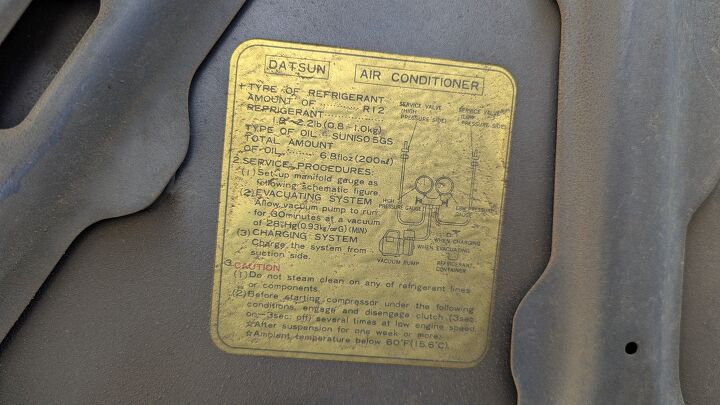 DATSUN AIR CONDITIONER
TYPE OF REFRIGERANT
AMOUNT OF ........ R12
REFRIGERANT ........
1.8~2.2lb(0.8~1.0kg)
TYPE OF OIL SUNISO 5GS
TOTAL AMOUNT
OF OIL ........ 6.8floz(200ml)
2. SERVICE PROCEDURES:
(1) Set-up manifold gauge as
following schematic figure
(2) EVACUATING SYSTEM
Allow vacuum pump to run
for 30minutes at a vacuum
of 28"Hg (MIN)
(3) CHARGING SYSTEM
Charge the system from
suction side.
SERVICE VALVE
(HIGH
PRESSURE SIDE)
SERVICE VALVE
PRESSURE SIDE)
HIGH
PRESSURE GAUGE
LOW PRESSURE
GAUGE
WHEN CHARGING
WHEN EVACUATING
VACUUM PUMP
REFRIGERANT
CONTAINER
3. CAUTION
(1) Do not steam clean on any of refrigerant lines
or components.
(2) Before starting compressor under the following
conditions, engage and disengage clutch (3sec
on-3sec. off) several times at low engine speed.
☆After suspension for one week or more.
☆Ambient temperature below 60°F(15.6°C).